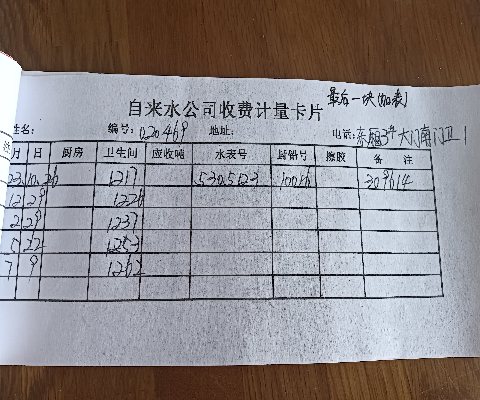 最后一块(加表)
自来水公司收费计量卡片
姓名: 编号: 020469 地址: 电话: 东 3# 大门南门卫 1
月 日 厨房 卫生间 应收吨 水表号 封铅号 擦胶 备 注
23.10.26 1217 5305123 10016 309614
12 29 1226
2 29 1237
5 22 1253
7 9 1262